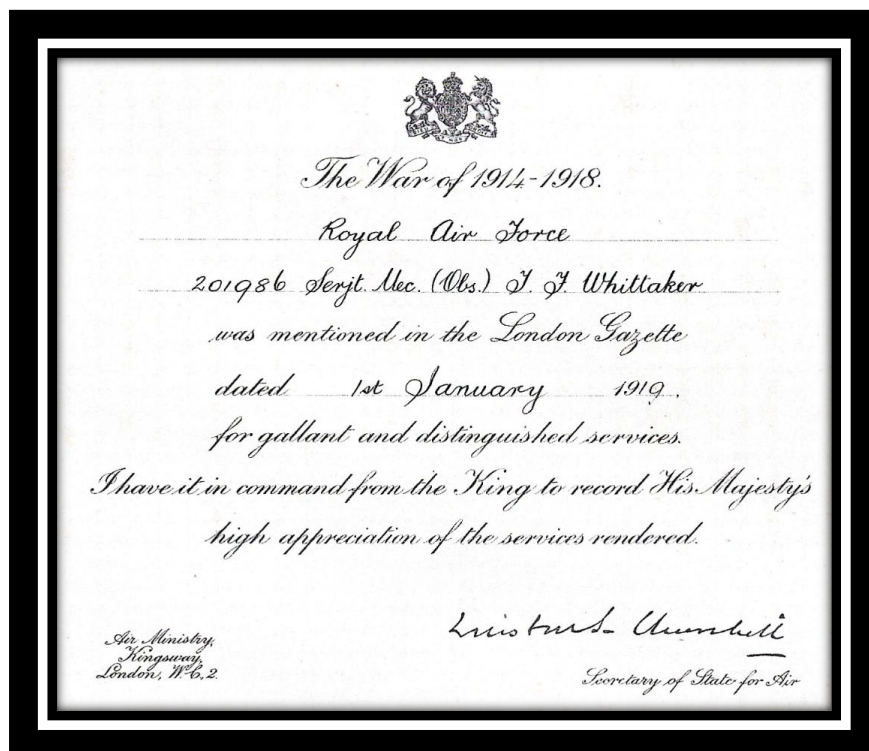 The War of 1914-1918.
Royal Air Force
201986 Serjt. Mec. (Obs.) J. J. Whittaker
was mentioned in the London Gazette
dated 1st January 1919.
for gallant and distinguished services.
I have it in command from the King to record His Majesty's
high appreciation of the services rendered.
Winston S. Churchill
Air Ministry,
Kingsway,
London, W.C.2.
Secretary of State for Air